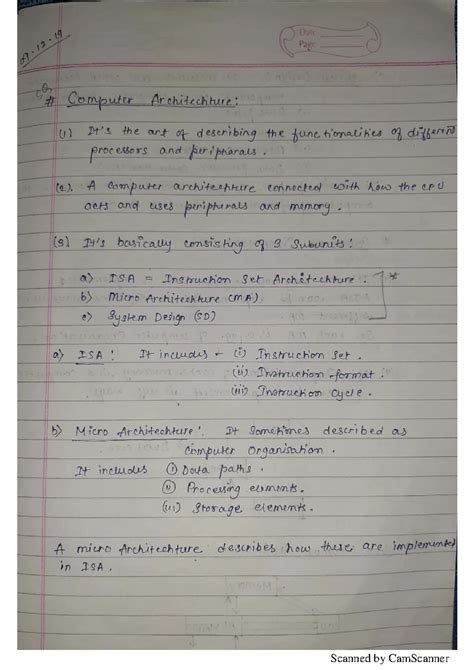 07.12.19
Date
Page
# Computer Architechture:
(1) It's the art of describing the functionalities of different
processors and peripharals.
(2). A Computer architechture connected with how the CPU
acts and uses peripherals and memory.
(3) It's basically consisting of 3 Subunits:
a) ISA = Instruction Set Architechture.
b) Micro Architechture (MA)
c) System Design (SD)
*
a) ISA: It includes - (i) Instruction Set.
(ii) Instruction format.
(iii) Instruction Cycle.
b) Micro Architechture: It Sometimes described as
Computer Organisation.
It includes (i) Data paths.
(ii) Processing elements.
(iii) Storage elements.
A micro Architechture describes how these are implemented
in ISA.
Scanned by CamScanner